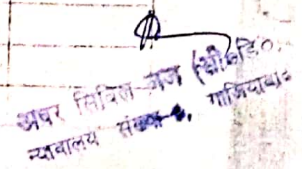 अवर सिविल जज (सी०डि०,
न्यायालय संख्या-, गाजियाबाद